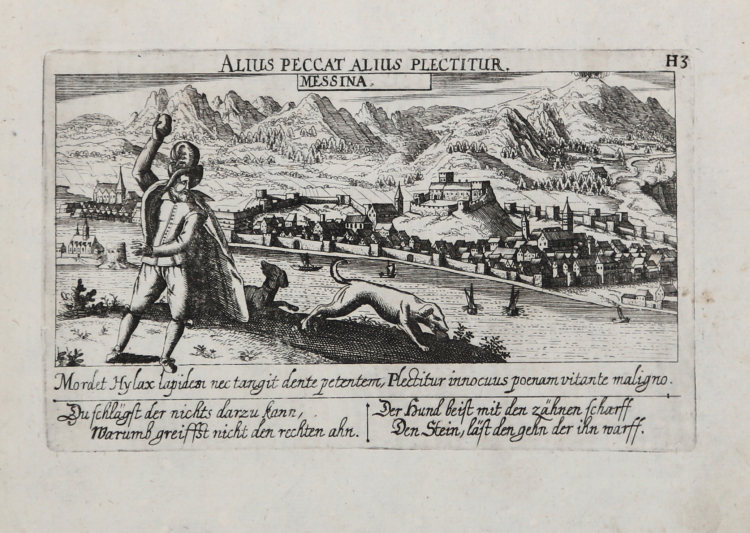 ALIUS PECCAT ALIUS PLECTITUR.
H3
MESSINA.
Mordet Hylax lapidem nec tangit dente petentem, Plectitur innocuus poenam vitante maligno.
Du schlägst der nichts darzu kann,
Warumb greiffst nicht den rechten ahn.
Der Hund beist mit den zähnen scharff
Den Stein, läst den gehn der ihn warff.